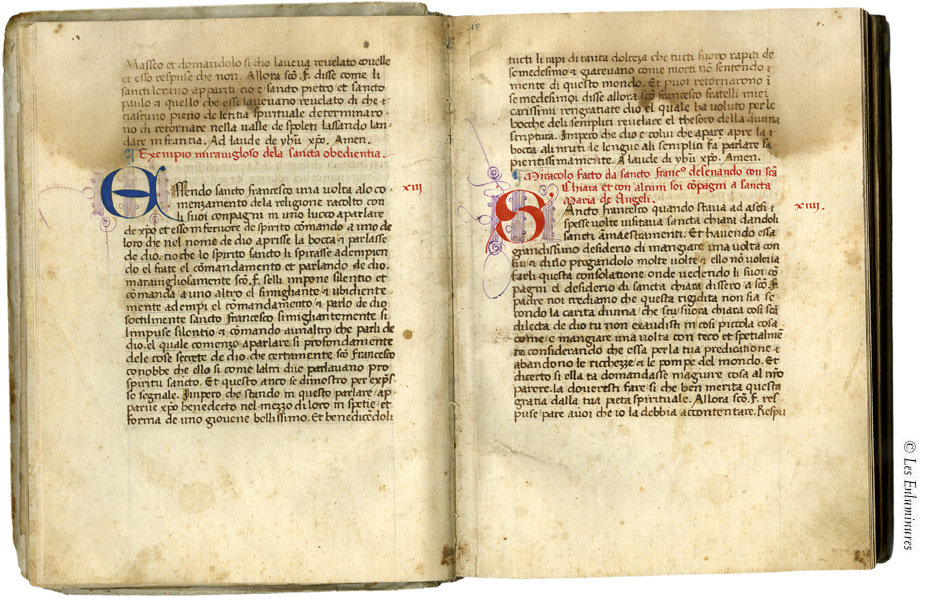 Masseo et domandolo si dio laueua reuelato couelle
et esso respuse che non. Allora scō. F. disse come li
sancti lerano appariti cio e sancto pietro et sancto
paulo & quello che essi laueuano reuelato di che &
ciascuno pieno de letitia spirituale determinaro
no di retornare nella ualle de spoleti lassando lan
dare in francia. Ad laude de yhū xpō. Amen.
Exempio marauiglioso dela sancta obedientia.
Essendo sancto francesco una uolta alo co
menzamento dela religione racolto con
li suoi conpagni in uno luoco aparlare
de xpō et esso in feruore de spirito comando a uno de
loro che nel nome de dio aprisse la bocca & parlasse
de dio. cioche lo spirito sancto li spirasse adempien
do el frate el comandamento et parlando de dio.
marauigliosamente scō. F. selli impone silentio et
comanda a uno altro el simighante & ubidiente
mente adempi el comandamento & parlo de dio
sottilmente sancto francesco simighantemente li
impuse silentio & comando aunaltro che parli de
dio. el quale comenzo aparlare si profondamente
dele cose secrete de dio. che certamente scō francesco
conobbe che ello si come laltri due parlauano pro
spiritu sancto. Et questo anco se dimostro per exps̄
so segnale. Impero che stando in questo parlare ap
parue xpō benedecto nel mezzo di loro in spetie et
forma de uno giouene bellissimo. Et benedicēdoli
xiii
18
tucti li rapi di tanta dolceza che tucti fuoro rapiti de
se medesimo & giaceuano come morti nō sentendo &
mente di questo mondo. Et puoi retornarono ī
se medesimoi disse allora scō francesco fratelli miei
carissimi rengratiate dio el quale ha uoluto per le
bocche deli sempleci reuelare el thesoro della diuina
scruptura. Impero che dio e colui che apare apre la &
bocca ali muti & le lengue ali semplici fa parlare sa
pientissimamente. A laude di yhū xpō. Amen.
Miracolo facto da sancto francō delenando con scā
Chiara et con alcuni soi cōpagni a sancta
Maria de Angeli.
Sancto francesco quando staua ad asesi &
spesse uolte uisitaua sancta chiara dandoli
sancti āmaestramenti. Et hauendo essa
grandissimo desiderio di mangiare una uolta con
lui & dicio progandolo molte uolte & ello nō uoleua
farli questa consolatione. onde uedendo li suoi cō
pagni el desiderio di sancta chiara dissero a scō F.
padre noi crediamo che questa rigidita non sia se
condo la carita diuina, che scū suora chiara cosi scā
dilecta de dio tu non exaudisti in cosi piccola cosa
come e mangiare una uolta con teco et spetialmē
te considerando che essa per la tua predicatione &
abandono le richezze & le pompe del mondo. Et
dicerto si ella ta domandasse magiure cosa al mō
parere. la doueresti fare si che ben merita questa
gratia dalla tua pieta spirituale. Allora scō. F. res
puse pare auoi che io la debbia accontentare. Respu
xiiii.
© Les Enluminures